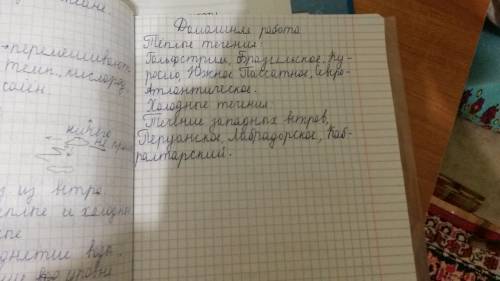 плане.
перемешивают
темп., кислород,
солен
из ветра
теплые и холодн
Домашняя работа
Теплые течения:
Гольфстрим, Бразильское, Ку-
росио, Южное Пассатное, Севро-
Атлантическое.
Холодные течения
Течение западных ветров,
Перуанское, Лабрадорское, Каб-
ралтарский.